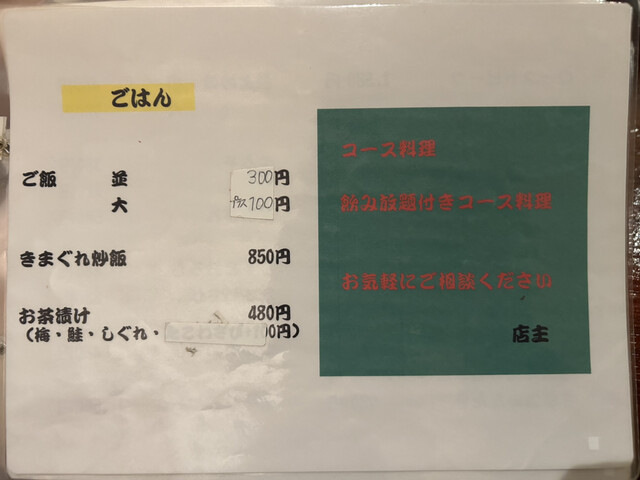 ごはん
ご飯 並 300円
大 プラス100円
きまぐれ炒飯 850円
お茶漬け 480円
（梅・鮭・しぐれ・ 00円）
コース料理
飲み放題付きコース料理
お気軽にご相談ください
店主